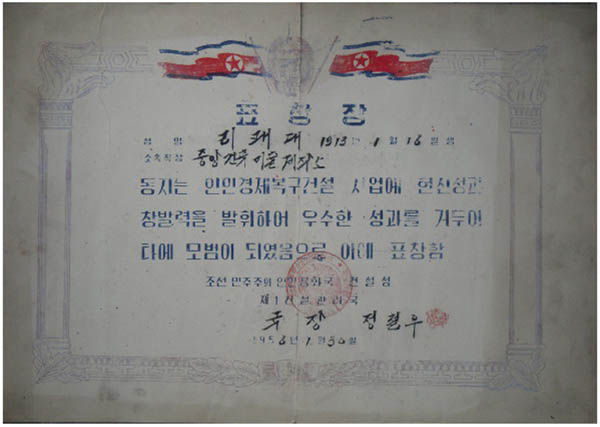 표창장
성명 리쾌대 1913년 1월 16일생
소속직장 중앙 건축 미술 제작소
동지는 인민경제복구건설 사업에 헌신성과
창발력을 발휘하여 우수한 성과를 거두어
타에 모범이 되였음으로 이에 표창함
조선 민주주의 인민공화국 건설성
제1건설관리국
국장 정철우
1956년 1월 30일